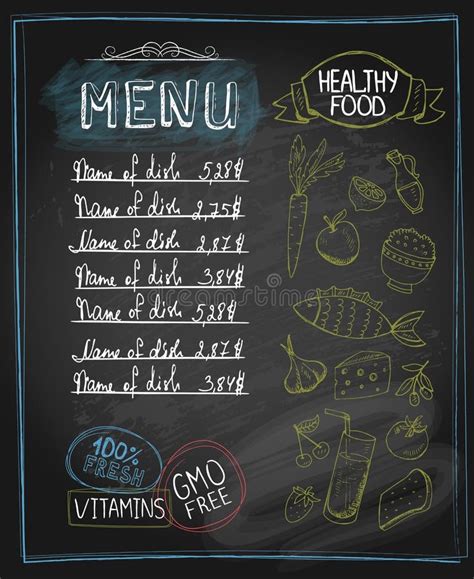 MENU
Name of dish 5,28$
Name of dish 2,75$
Name of dish 2,87$
Name of dish 3,84$
Name of dish 5,28$
Name of dish 2,87$
Name of dish 3,84$
HEALTHY
FOOD
100%
FRESH
VITAMINS
GMO
FREE
dreamstime